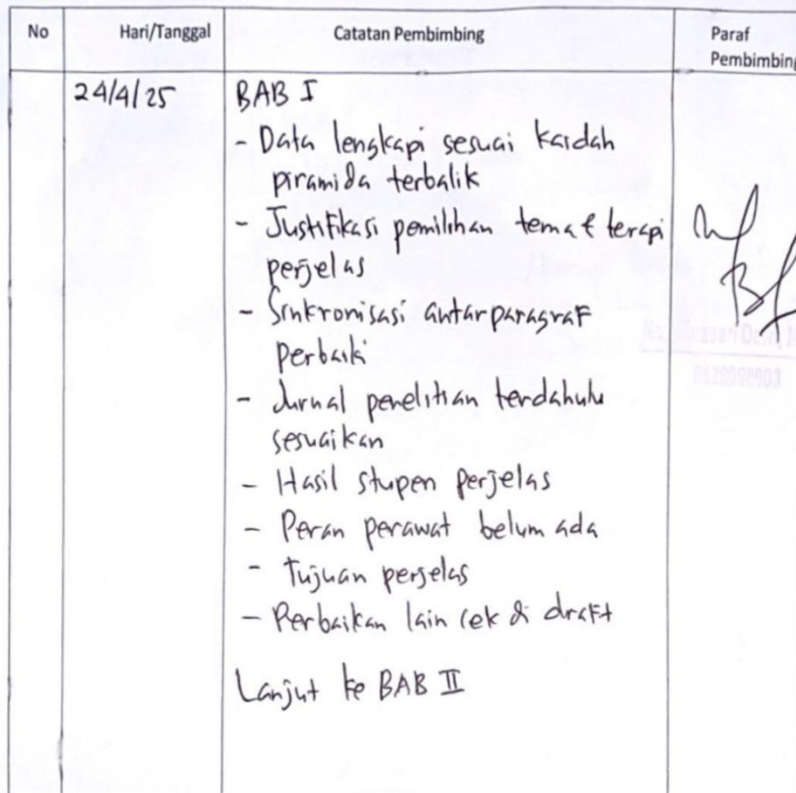 No Hari/Tanggal Catatan Pembimbing Paraf
Pembimbing
24/4/25 BAB I
- Data lengkapi sesuai kaidah
piramida terbalik
- Justifikasi pemilihan tema & terapi
perjelas
- Sinkronisasi antar paragraf
perbaiki
- Jurnal penelitian terdahulu
sesuaikan
- Hasil stupen perjelas
- Peran perawat belum ada
- Tujuan perjelas
- Perbaikan lain cek di draft
Lanjut ke BAB II